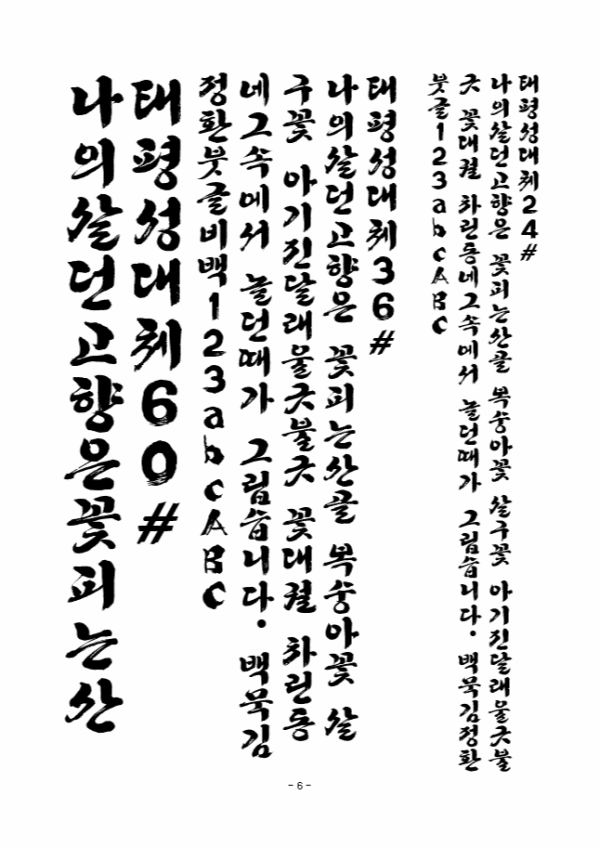 태평성대체24#
나의살던고향은 꽃피는산골 복숭아꽃 살구꽃 아기진달래울긋불
긋 꽃대궐 차린동네그속에서 놀던때가 그립습니다. 백묵김정환
붓글123abcABC
태평성대체36#
나의살던고향은 꽃피는산골 복숭아꽃 살
구꽃 아기진달래울긋불긋 꽃대궐 차린동
네그속에서 놀던때가 그립습니다. 백묵김
정환붓글비백123abcABC
태평성대체60#
나의살던고향은꽃피는산
- 6 -